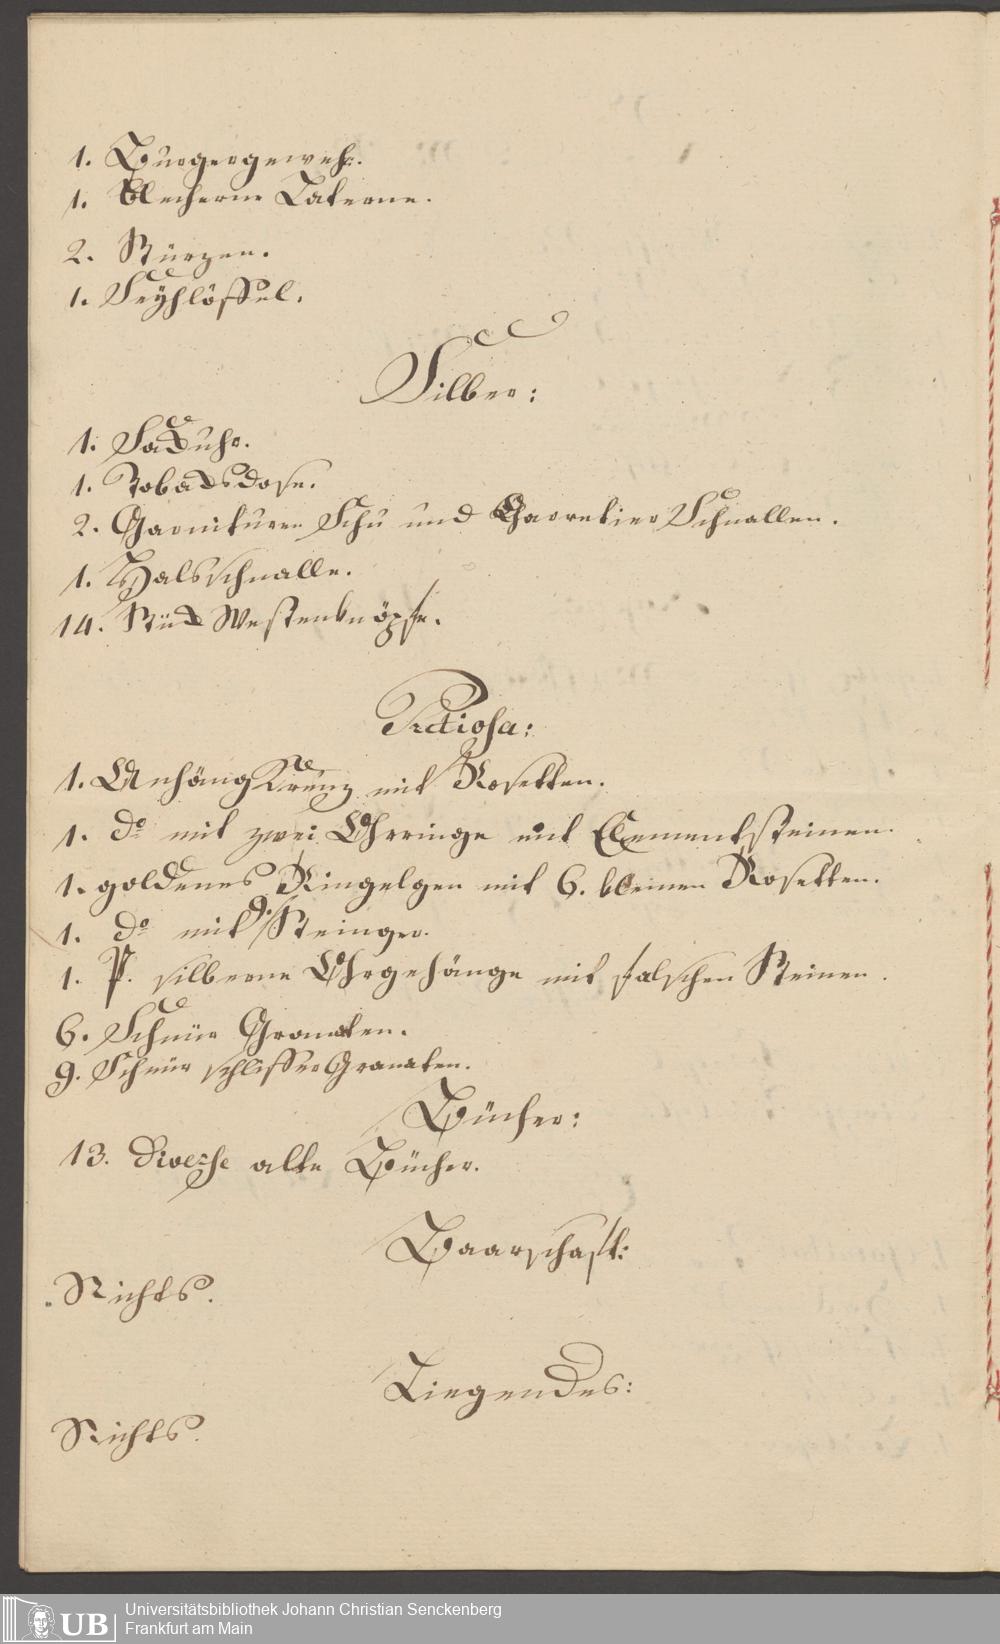 1. Burgergewehr.
1. blecherne Laterne.
2. Stürzen.
1. Seyhlöffel.
Silber:
1. Sackuhr.
1. Tobacksdose.
2. Garnituren Schu und Charretier Schnallen.
1. Halsschnalle.
14. Stück Westenknöpfe.
Pretiosa:
1. Anhäng Kreuz mit Rosetten.
1. do mit zwei Ohrringe mit Elementsteinen.
1. goldenes Ringelgen mit 6. kleinen Rosetten.
1. do mit 9. Steinger.
1. P. silberne Ohrgehänge mit falschen Steinen.
6. Schnür Granaten.
9. Schnür schliffer Granaten.
Bücher:
13. Diverse alte Bücher.
Baarschaft:
Nichts.
Liegendes:
Nichts.
UB
Universitätsbibliothek Johann Christian Senckenberg
Frankfurt am Main